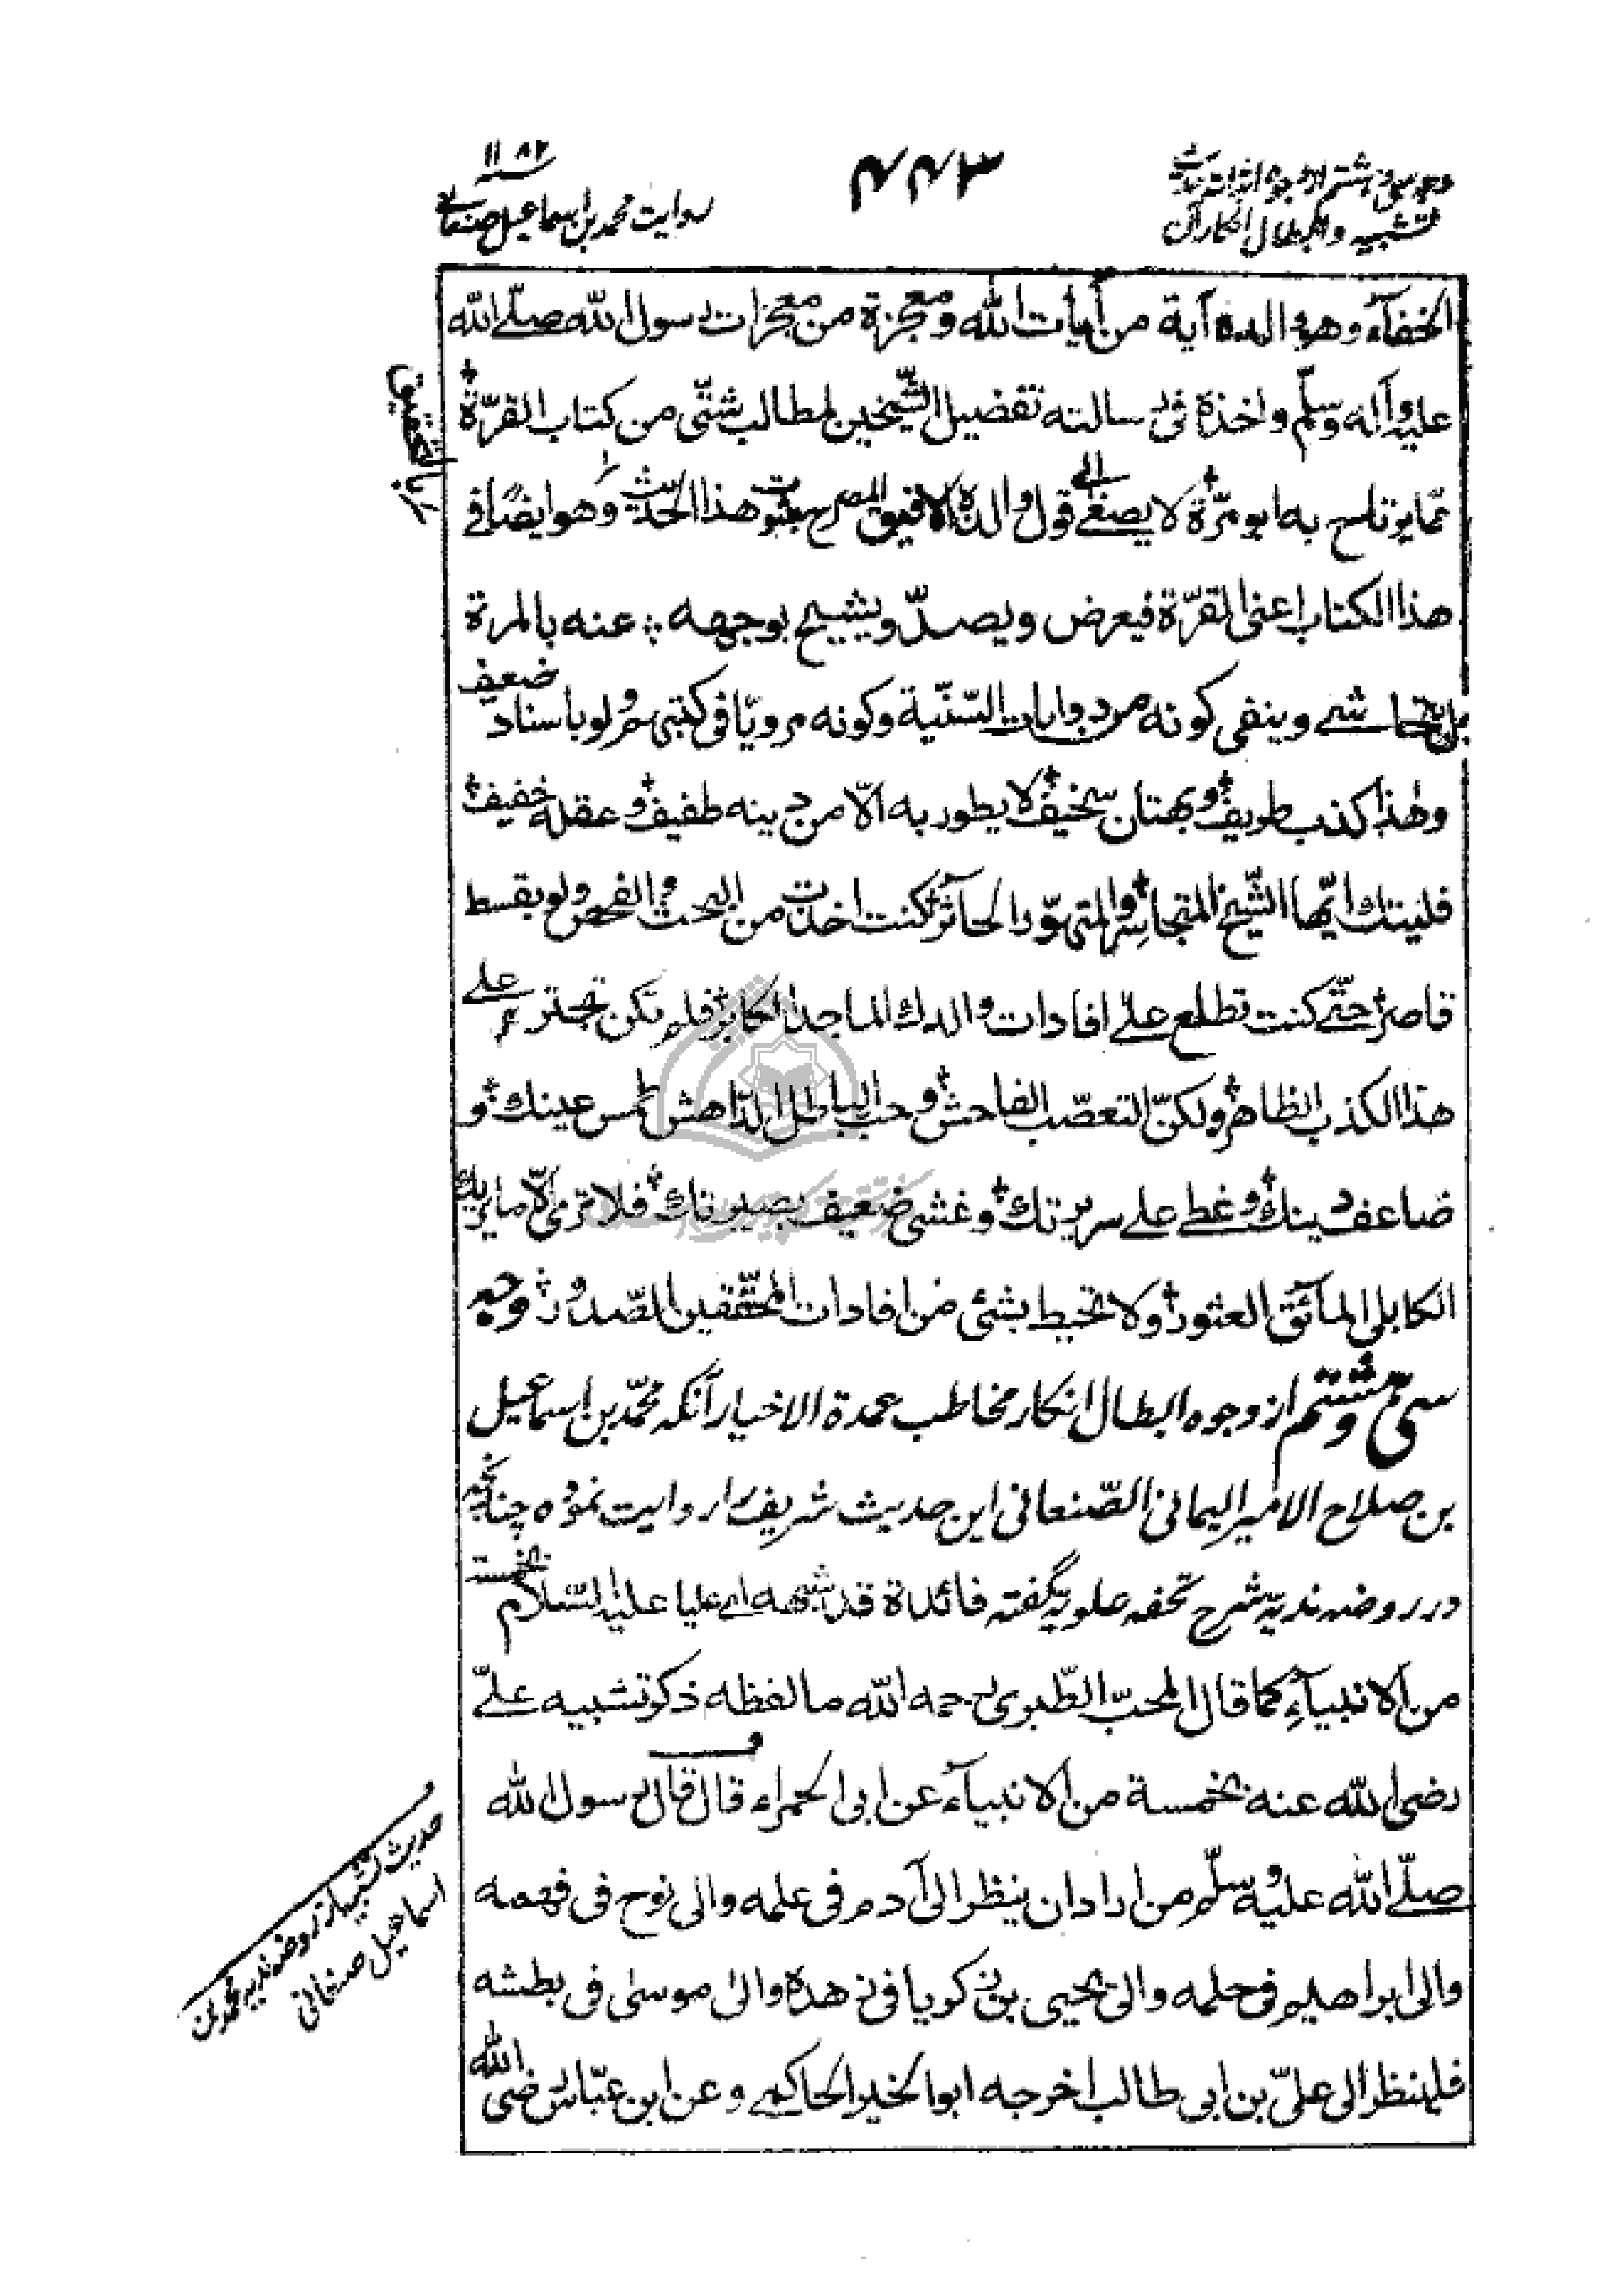 وجه سی و هشتم از وجوه اثبات حدیث
تشبیه و ابطال انکار آن
۴۴۳
سنه ۱۱۸۲
روایت محمد بن اسماعیل صنعانی
الخفآء وهو والده آیة من آیات الله ومعجزة من معجزات رسول الله صلّے الله
علیه وآله وسلّم واخذه فی رسالته تفضیل الشّیخین لمطالب شتّی من کتاب القرّة
ممّا یرتاح به ابو مرّة لا یصغی الی قول والده الافیق المصرح بثبوت هذا الحدیث وهو ایضًا فی
بالتحقیق
هذا الکتاب اعنی القرّة فیعرض ویصدّ ویشیح بوجهه عنه بالمرة
بل یتحاشے وینفی کونه من روایات السّنّیة وکونه مرویّا فی کتبهم ولو باسناد ضعیف
وهٰذا کذب طریف وبهتان سخیف لا یطور به الّا من دینه طفیف وعقله خفیف
فلیتك ایّها الشّیخ المتجاسر والمتهوّر الحائر کنت اخذت من البحث والفحص ولو بقسط
قاصر حتّے کنت تطلع علے افادات والدك الماجد الکابر فلم تکن تجترء علے
هٰذا الکذب الظاهر ولکنّ التعصّب الفاحش وحب الباطل الداهش طمس عینك و
ضاعف رینك وغطے علے سریرتك وغشی ضعیف بصیرتك فلا تری الّا ما یریك
الکابلی المائق العثور ولا تحیط بشئ من افادات المحقّقین الصّدور وجه
سی و هشتم از وجوه ابطال انکار مخاطب عمدة الاخیار آنکه محمّد بن اسماعیل
بن صلاح الامیر الیمانی الصّنعانی این حدیث شریف را روایت نموده چنانچه
در روضه ندیه شرح تحفه علویه گفته فائدة قد شبّهه ای علیا علیه السّلام بخمسة
من الانبیآء کما قال المحبّ الطّبری رحمه الله ما لفظه ذکر تشبیه علیّ
رضی الله عنه بخمسة من الانبیآء عن ابی الحمراء قال قال رسول الله
صلّے الله علیه وسلّم من اراد ان ینظر الی آدم فی علمه والی نوح فی فهمه
والی ابراهیم فی حلمه والی یحیی بن زکریا فی زهده والی موسی فی بطشه
فلینظر الی علیّ بن ابی طالب اخرجه ابو الخیر الحاکمے وعن ابن عبّاس رضی الله
حدیث تشبیه از روضه ندیه محمد بن
اسماعیل صنعانی